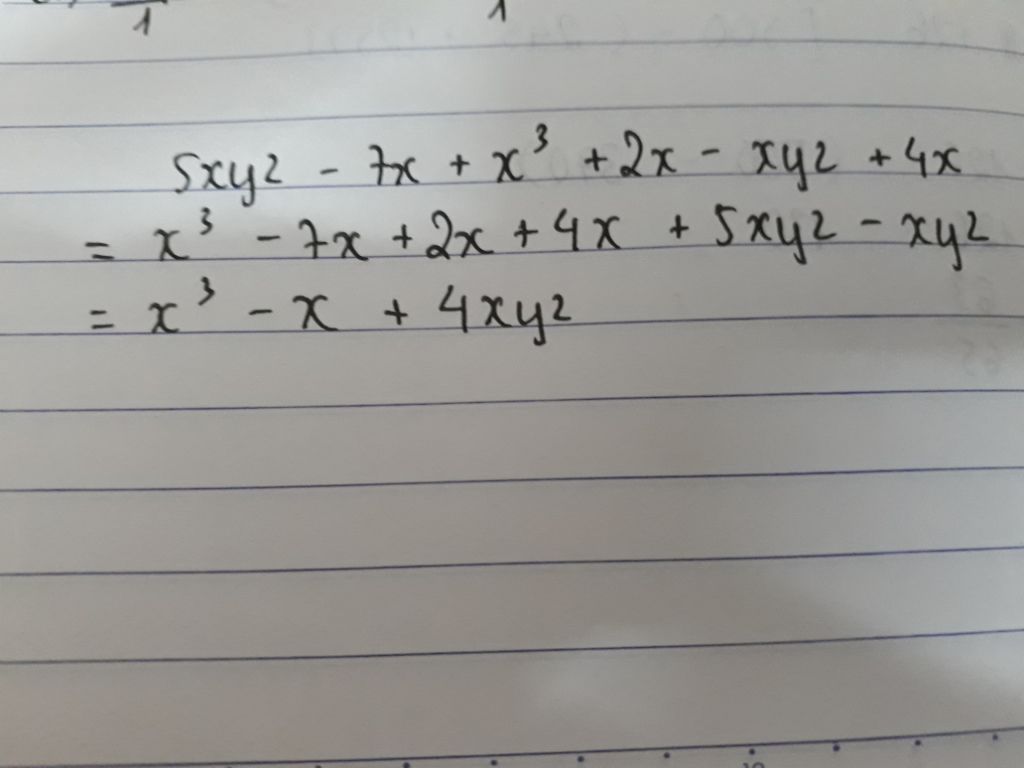 5xyz - 7x + x³ + 2x - xyz + 4x
= x³ - 7x + 2x + 4x + 5xyz - xyz
= x³ - x + 4xyz